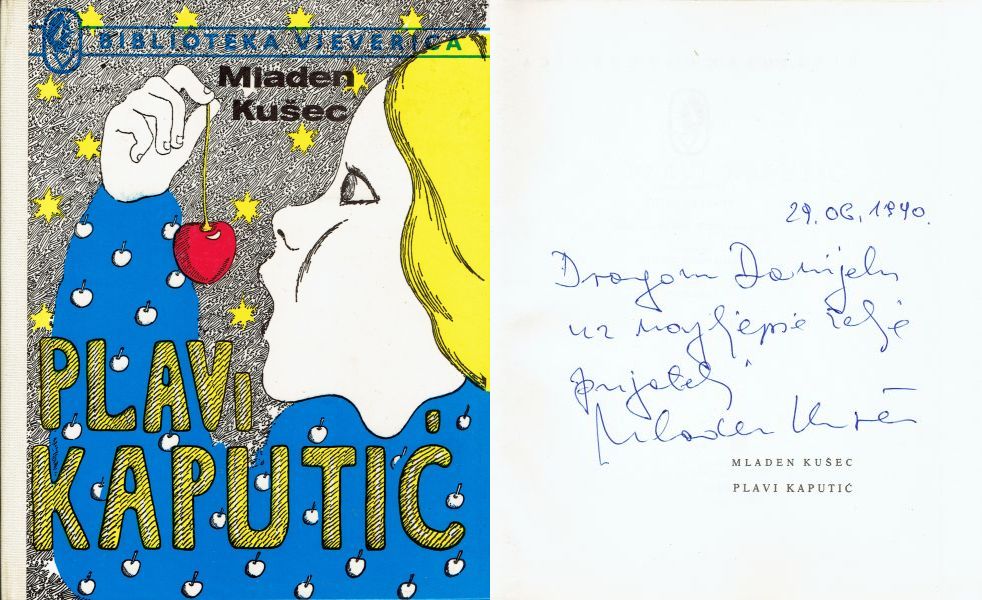 BIBLIOTEKA VJEVERICA
Mladen
Kušec
PLAVI
KAPUTIĆ
29.06.1990.
Dragom Danijelu
uz najljepše želje
prijatelj
Mladen Kušec
MLADEN KUŠEC
PLAVI KAPUTIĆ